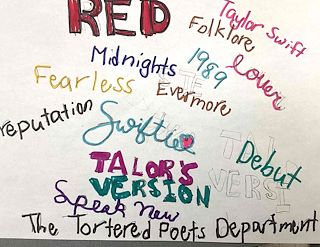 RED
Taylor Swift
Folklore
Midnights
1989
Lover
Fearless
Evermore
reputation
Swiftie
TALOR'S
VERSION
Debut
Speak New
The Tortered Poets Department